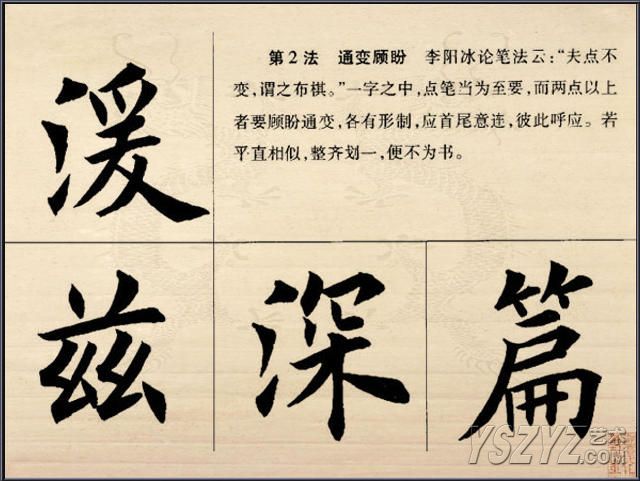 第2法 通变顾盼 李阳冰论笔法云:“夫点不
变,谓之布棋。”一字之中,点笔当为至要,而两点以上
者要顾盼通变,各有形制,应首尾意连,彼此呼应。若
平直相似,整齐划一,便不为书。
湲
兹 深 篇
YSZYZ艺术
.COM